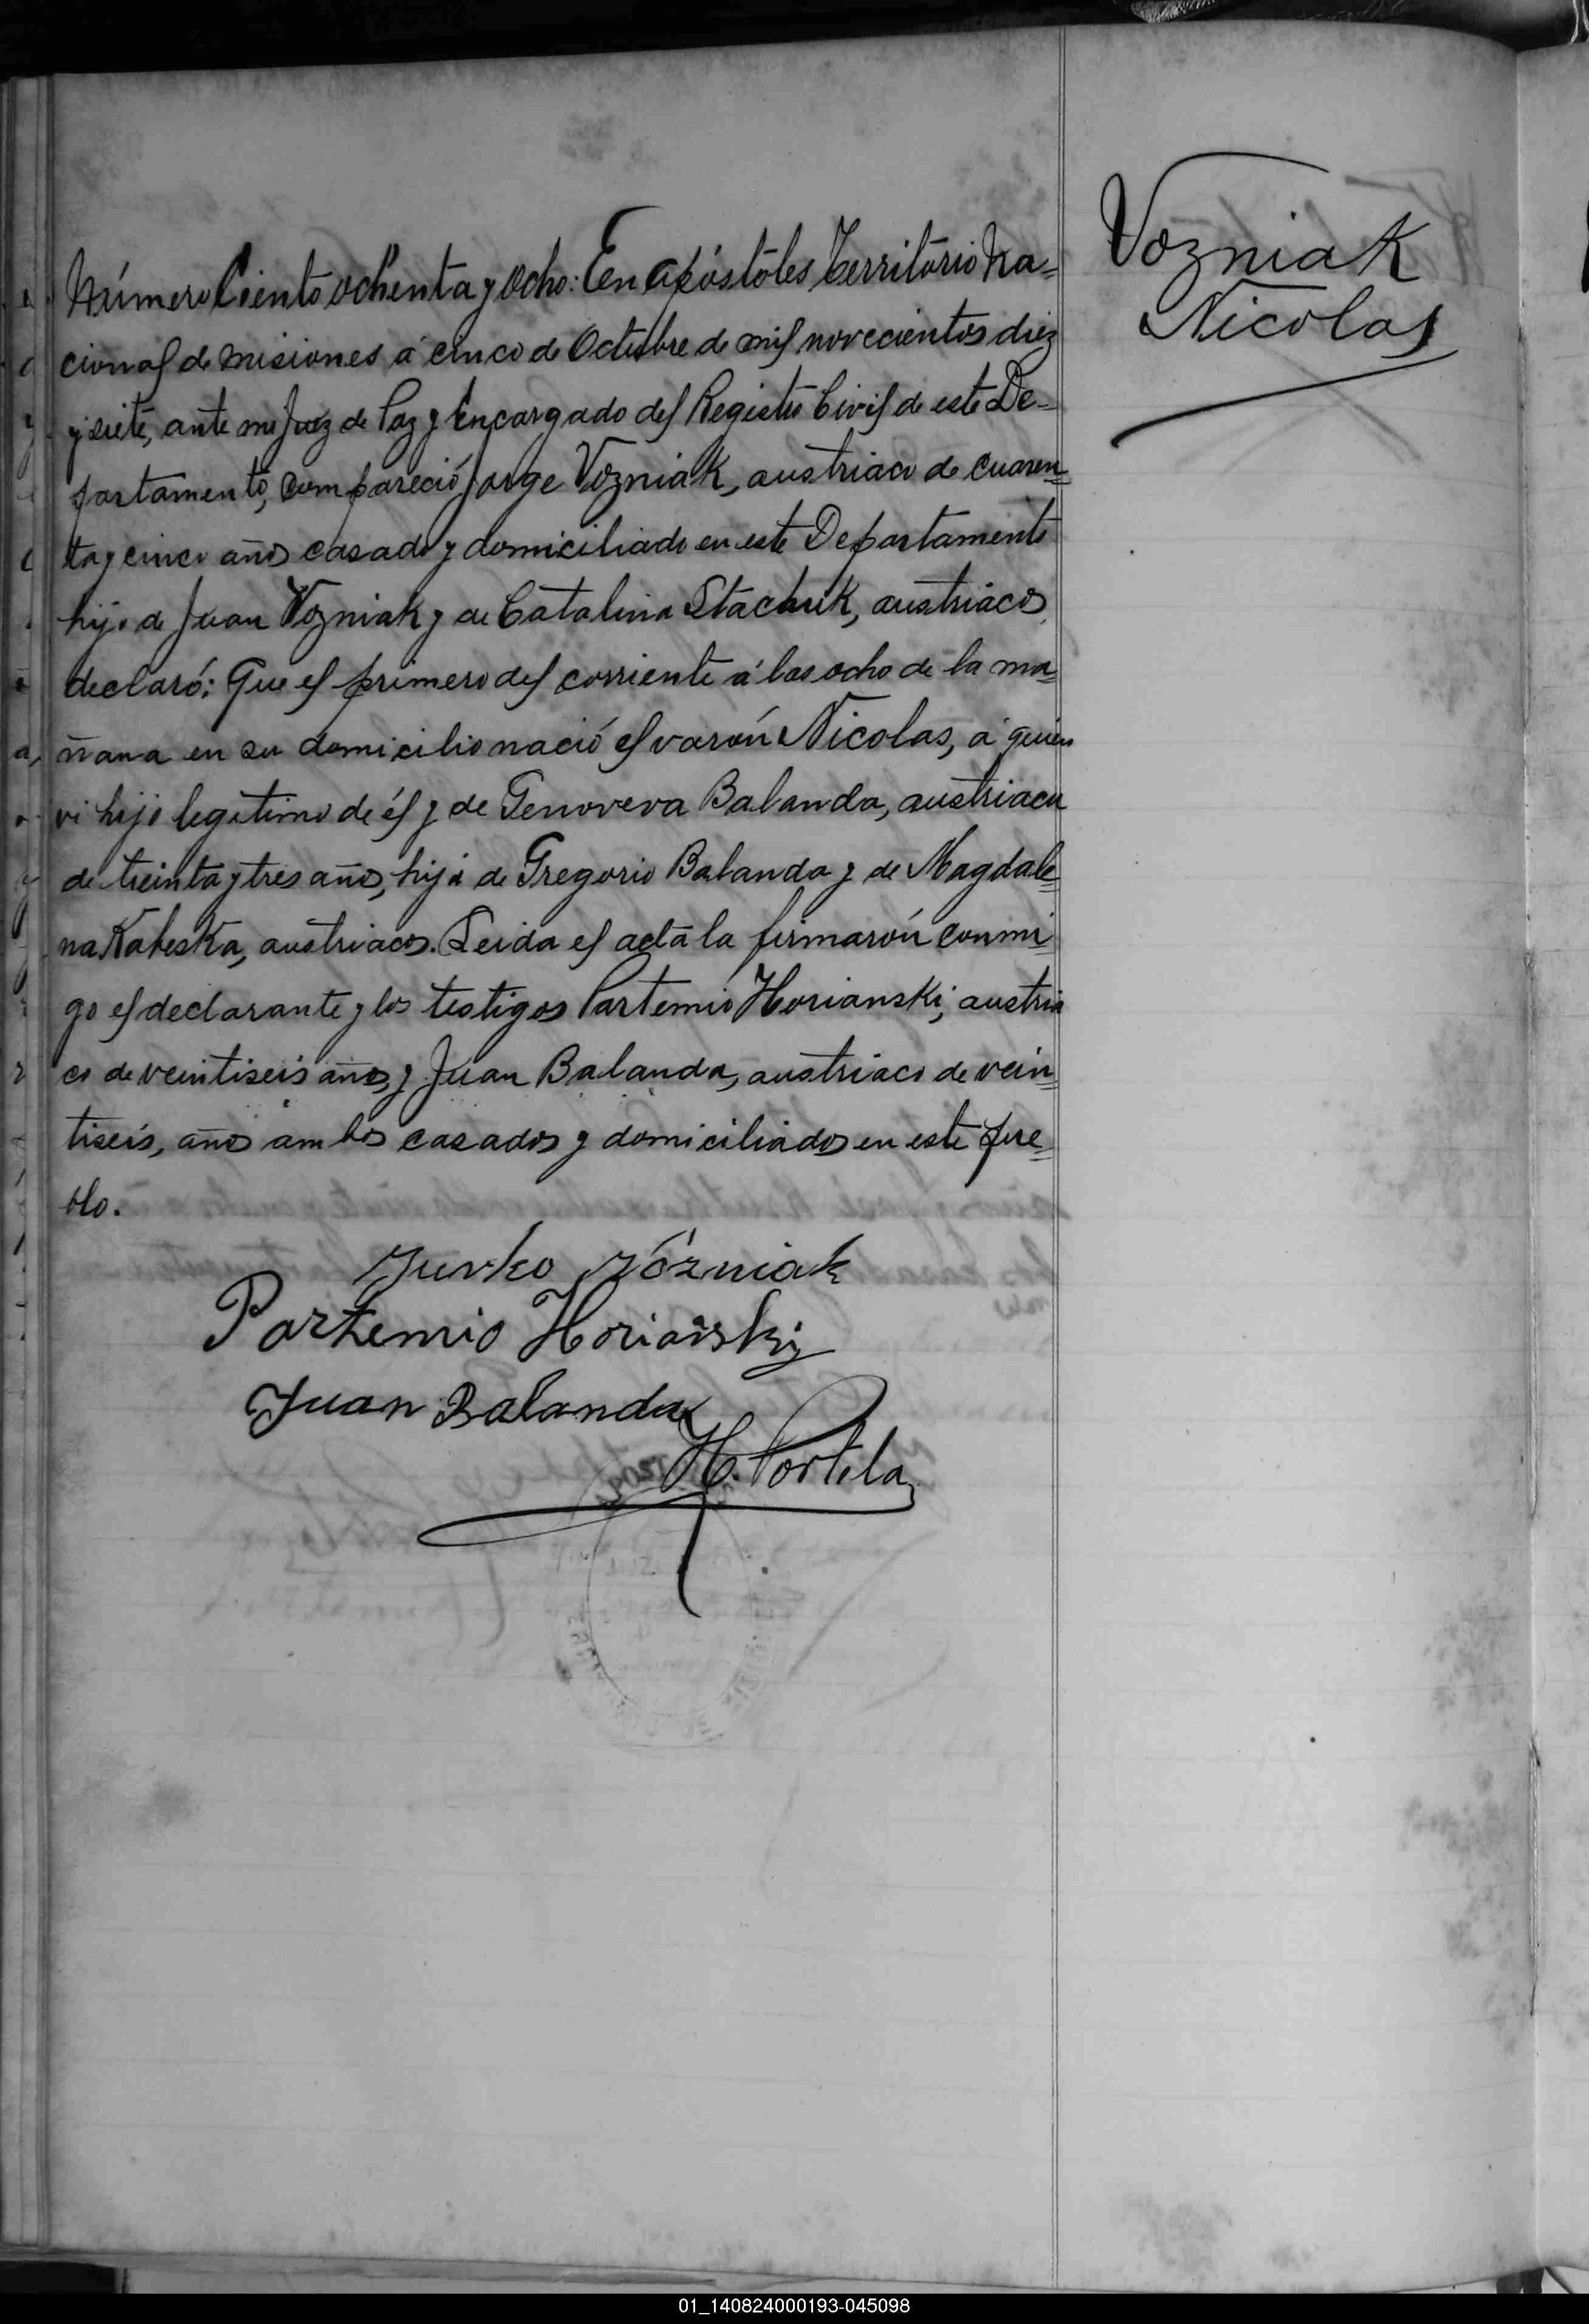 Vozniak
Nicolas
Número Ciento ochenta y Ocho: En Apóstoles Territorio Na=
cional de Misiones á cinco de Octubre de mil novecientos diez
y siete, ante mi Juez de Paz y Encargado del Registro Civil de este De=
partamento, compareció Jorge Vozniak, austriaco de cuaren=
ta y cinco años casado y domiciliado en este Departamento
hijo de Juan Vozniak y de Catalina Stachuk, austriacos,
declaró: Que el primero del corriente á las ocho de la ma=
ñana en su domicilio nació el varón Nicolas, á quien
vi hijo legitimo de él y de Genoveva Balanda, austriaca
de treinta y tres años, hija de Gregorio Balanda y de Magdale=
na, austriacos. Leida el acta la firmarón conmi=
go el declarante y los testigos Partemio Horianski, austria
co de veintiseis años, y Juan Balanda, austriaco de vein=
tiseis, años ambos casados y domiciliados en este pue=
blo.
Jurko Wózniak
Partemio Horianski
Juan Balanda
H. Portela
01_140824000193-045098